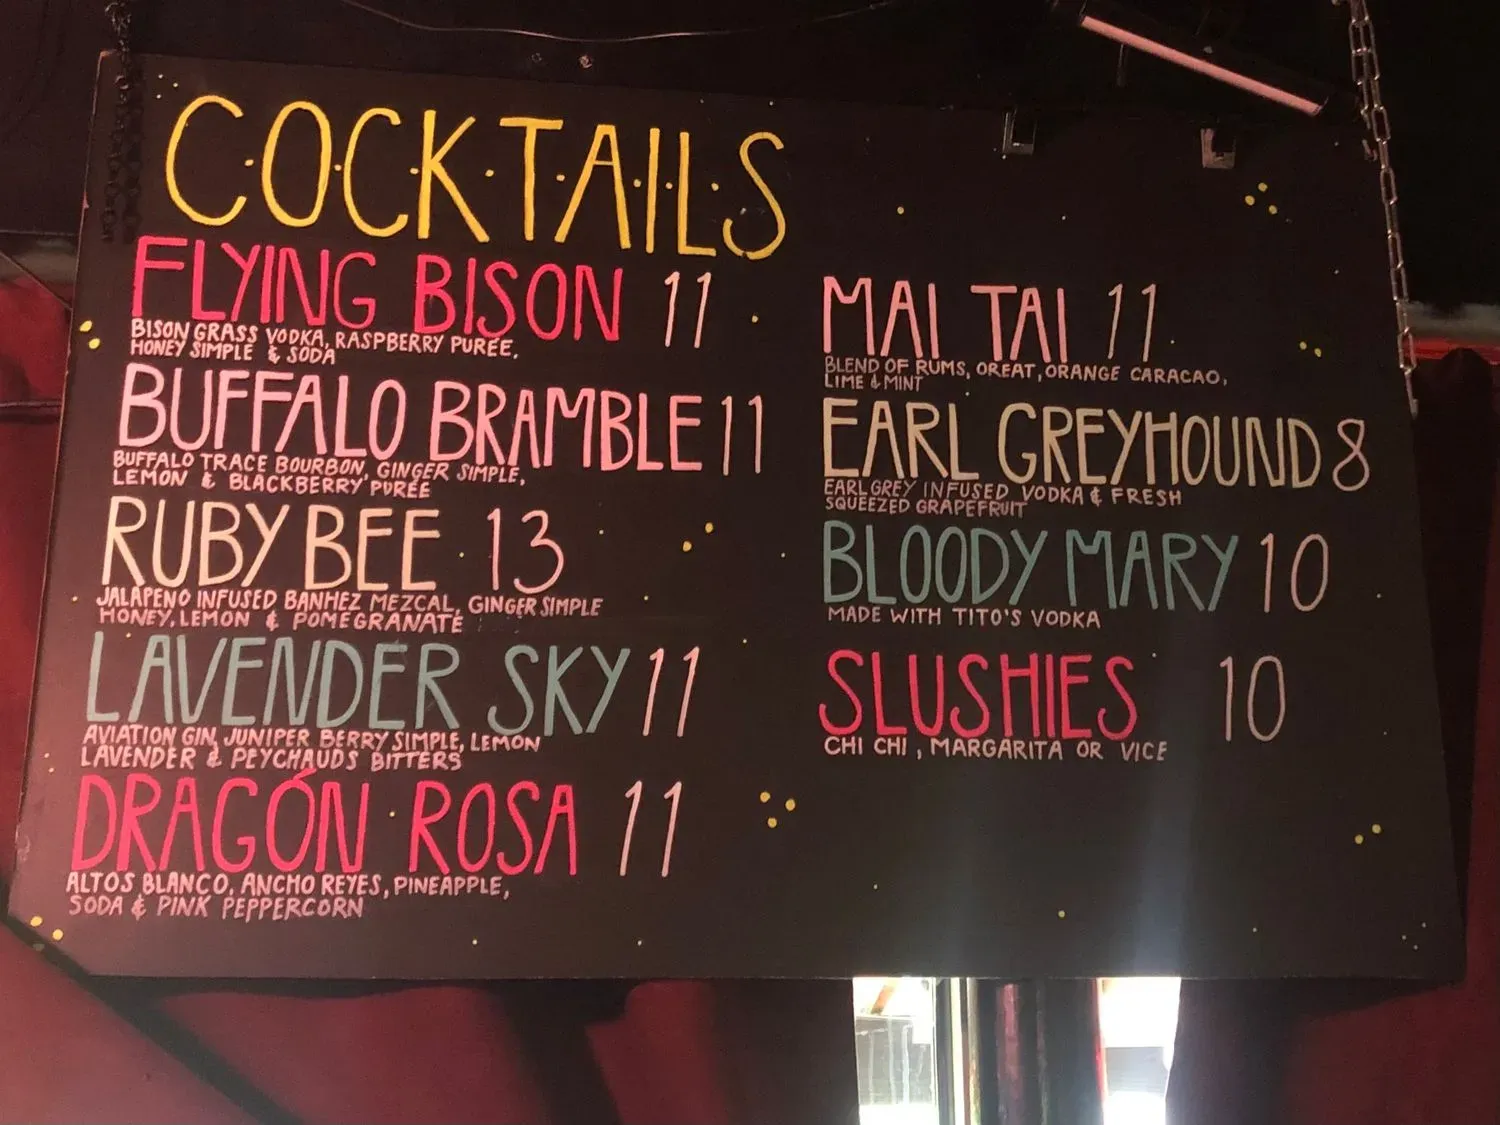 C·O·C·K·T·A·I·L·S
FLYING BISON 11
BISON GRASS VODKA, RASPBERRY PURÉE,
HONEY SIMPLE & SODA
BUFFALO BRAMBLE 11
BUFFALO TRACE BOURBON, GINGER SIMPLE,
LEMON & BLACKBERRY PURÉE
RUBY BEE 13
JALAPEÑO INFUSED BANHEZ MEZCAL, GINGER SIMPLE
HONEY, LEMON & POMEGRANATE
LAVENDER SKY 11
AVIATION GIN, JUNIPER BERRY SIMPLE, LEMON
LAVENDER & PEYCHAUDS BITTERS
DRAGÓN ROSA 11
ALTOS BLANCO, ANCHO REYES, PINEAPPLE,
SODA & PINK PEPPERCORN
MAI TAI 11
BLEND OF RUMS, OREAT, ORANGE CARACAO,
LIME & MINT
EARL GREYHOUND 8
EARL GREY INFUSED VODKA & FRESH
SQUEEZED GRAPEFRUIT
BLOODY MARY 10
MADE WITH TITO'S VODKA
SLUSHIES 10
CHI CHI, MARGARITA OR VICE